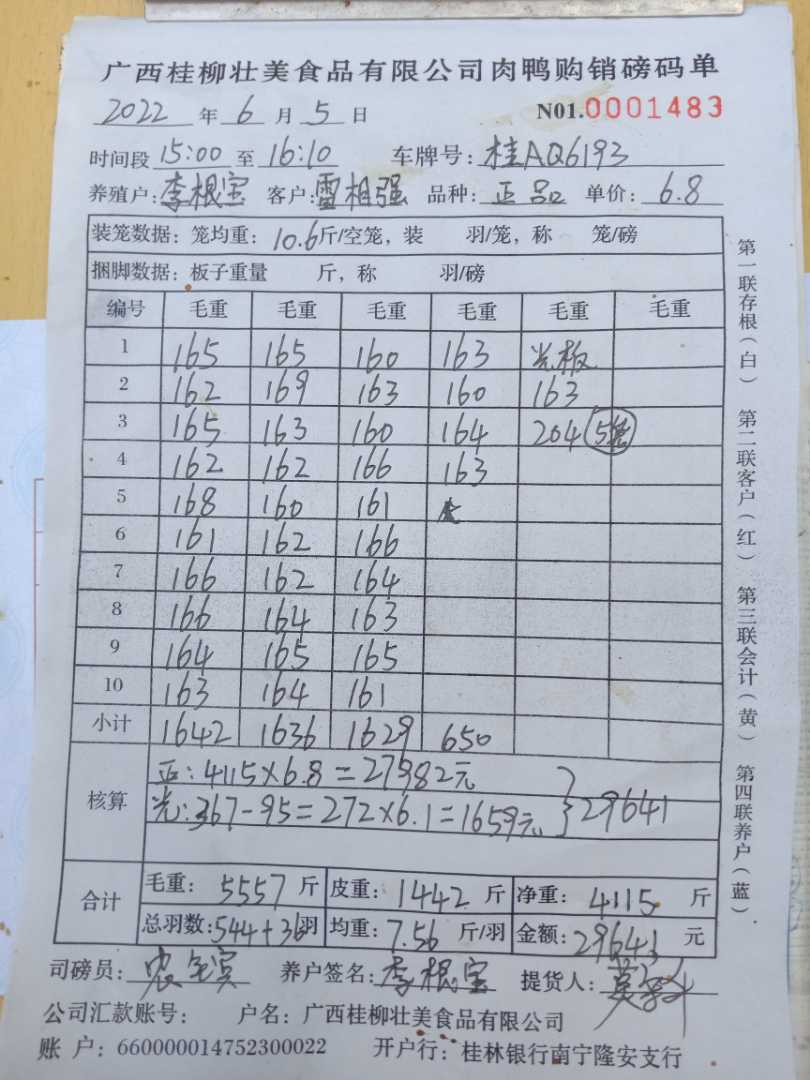 广西桂柳壮美食品有限公司肉鸭购销磅码单
2022 年 6 月 5 日 N01.0001483
时间段 15:00 至 16:10 车牌号: 桂AQ6193
养殖户: 李根宝 客户: 雷相强 品种: 正品 单价: 6.8
装笼数据: 笼均重: 10.6斤/空笼, 装 羽/笼, 称 笼/磅
捆脚数据: 板子重量 斤, 称 羽/磅
编号 毛重 毛重 毛重 毛重 毛重 毛重
1 165 165 160 163 光板
2 162 169 163 160 163
3 165 163 160 164 204 5笼
4 162 162 166 163
5 168 160 161
6 161 162 166
7 166 162 164
8 166 164 163
9 164 165 165
10 163 164 161
小计 1642 1636 1629 650
核算 正: 4115×6.8=27982元
光: 367-95=272×6.1=1659元 }29641
合计 毛重: 5557 斤 皮重: 1442 斤 净重: 4115 斤
总羽数: 544+36羽 均重: 7.56 斤/羽 金额: 29641 元
司磅员: 养户签名: 李根宝 提货人:
公司汇款账号: 户名: 广西桂柳壮美食品有限公司
账 户: 660000014752300022 开户行: 桂林银行南宁隆安支行
第一联存根(白) 第二联客户(红) 第三联会计(黄) 第四联养户(蓝)